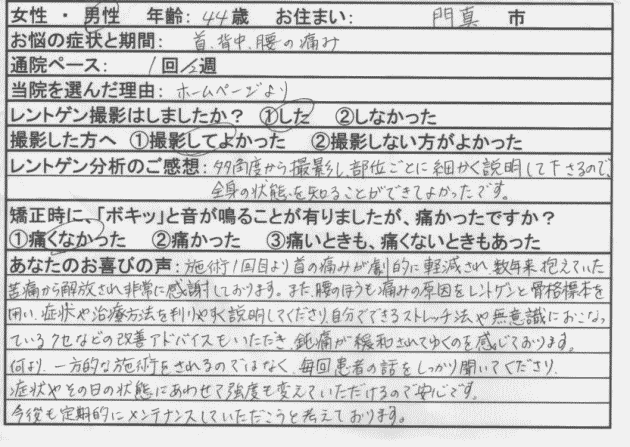 女性 ・ 男性　年齢：44歳　お住まい：　門真　市
お悩の症状と期間：　首、背中、腰の痛み
通院ペース：　1回/2週
当院を選んだ理由：ホームページより
レントゲン撮影はしましたか？　①した　②しなかった
撮影した方へ　①撮影してよかった　②撮影しない方がよかった
レントゲン分析のご感想：多角度から撮影し、部位ごとに細かく説明して下さるので、
全身の状態を知ることができてよかったです。
矯正時に、「ボキッ」と音が鳴ることが有りましたが、痛かったですか？
①痛くなかった　②痛かった　③痛いときも、痛くないときもあった
あなたのお喜びの声：施術1回目より首の痛みが劇的に軽減され、数年来抱えていた
苦痛から解放され非常に感謝しております。また、腰のほうも痛みの原因をレントゲンと骨格標本を
用い、症状や治療方法を判りやすく説明してくださり、自分でできるストレッチ法や無意識におこなっ
ているクセなどの改善アドバイスもいただき、鈍痛が緩和されてゆくのを感じております。
何より、一方的な施術をされるのではなく、毎回患者の話をしっかり聞いてくださり、
症状やその日の状態にあわせて強度も変えていただけるので安心です。
今後も定期的にメンテナンスしていただこうと考えております。